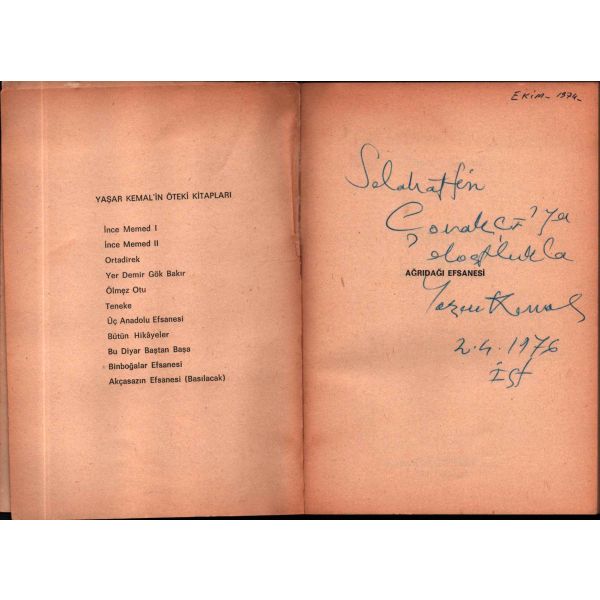 YAŞAR KEMAL'İN ÖTEKİ KİTAPLARI
İnce Memed I
İnce Memed II
Ortadirek
Yer Demir Gök Bakır
Ölmez Otu
Teneke
Üç Anadolu Efsanesi
Bütün Hikâyeler
Bu Diyar Baştan Başa
Binboğalar Efsanesi
Akçasazın Efsanesi (Basılacak)
EKİM- 1974-
Selahattin
dostlukla
AĞRIDAĞI EFSANESİ
Yaşar Kemal
2.4.1976
İst